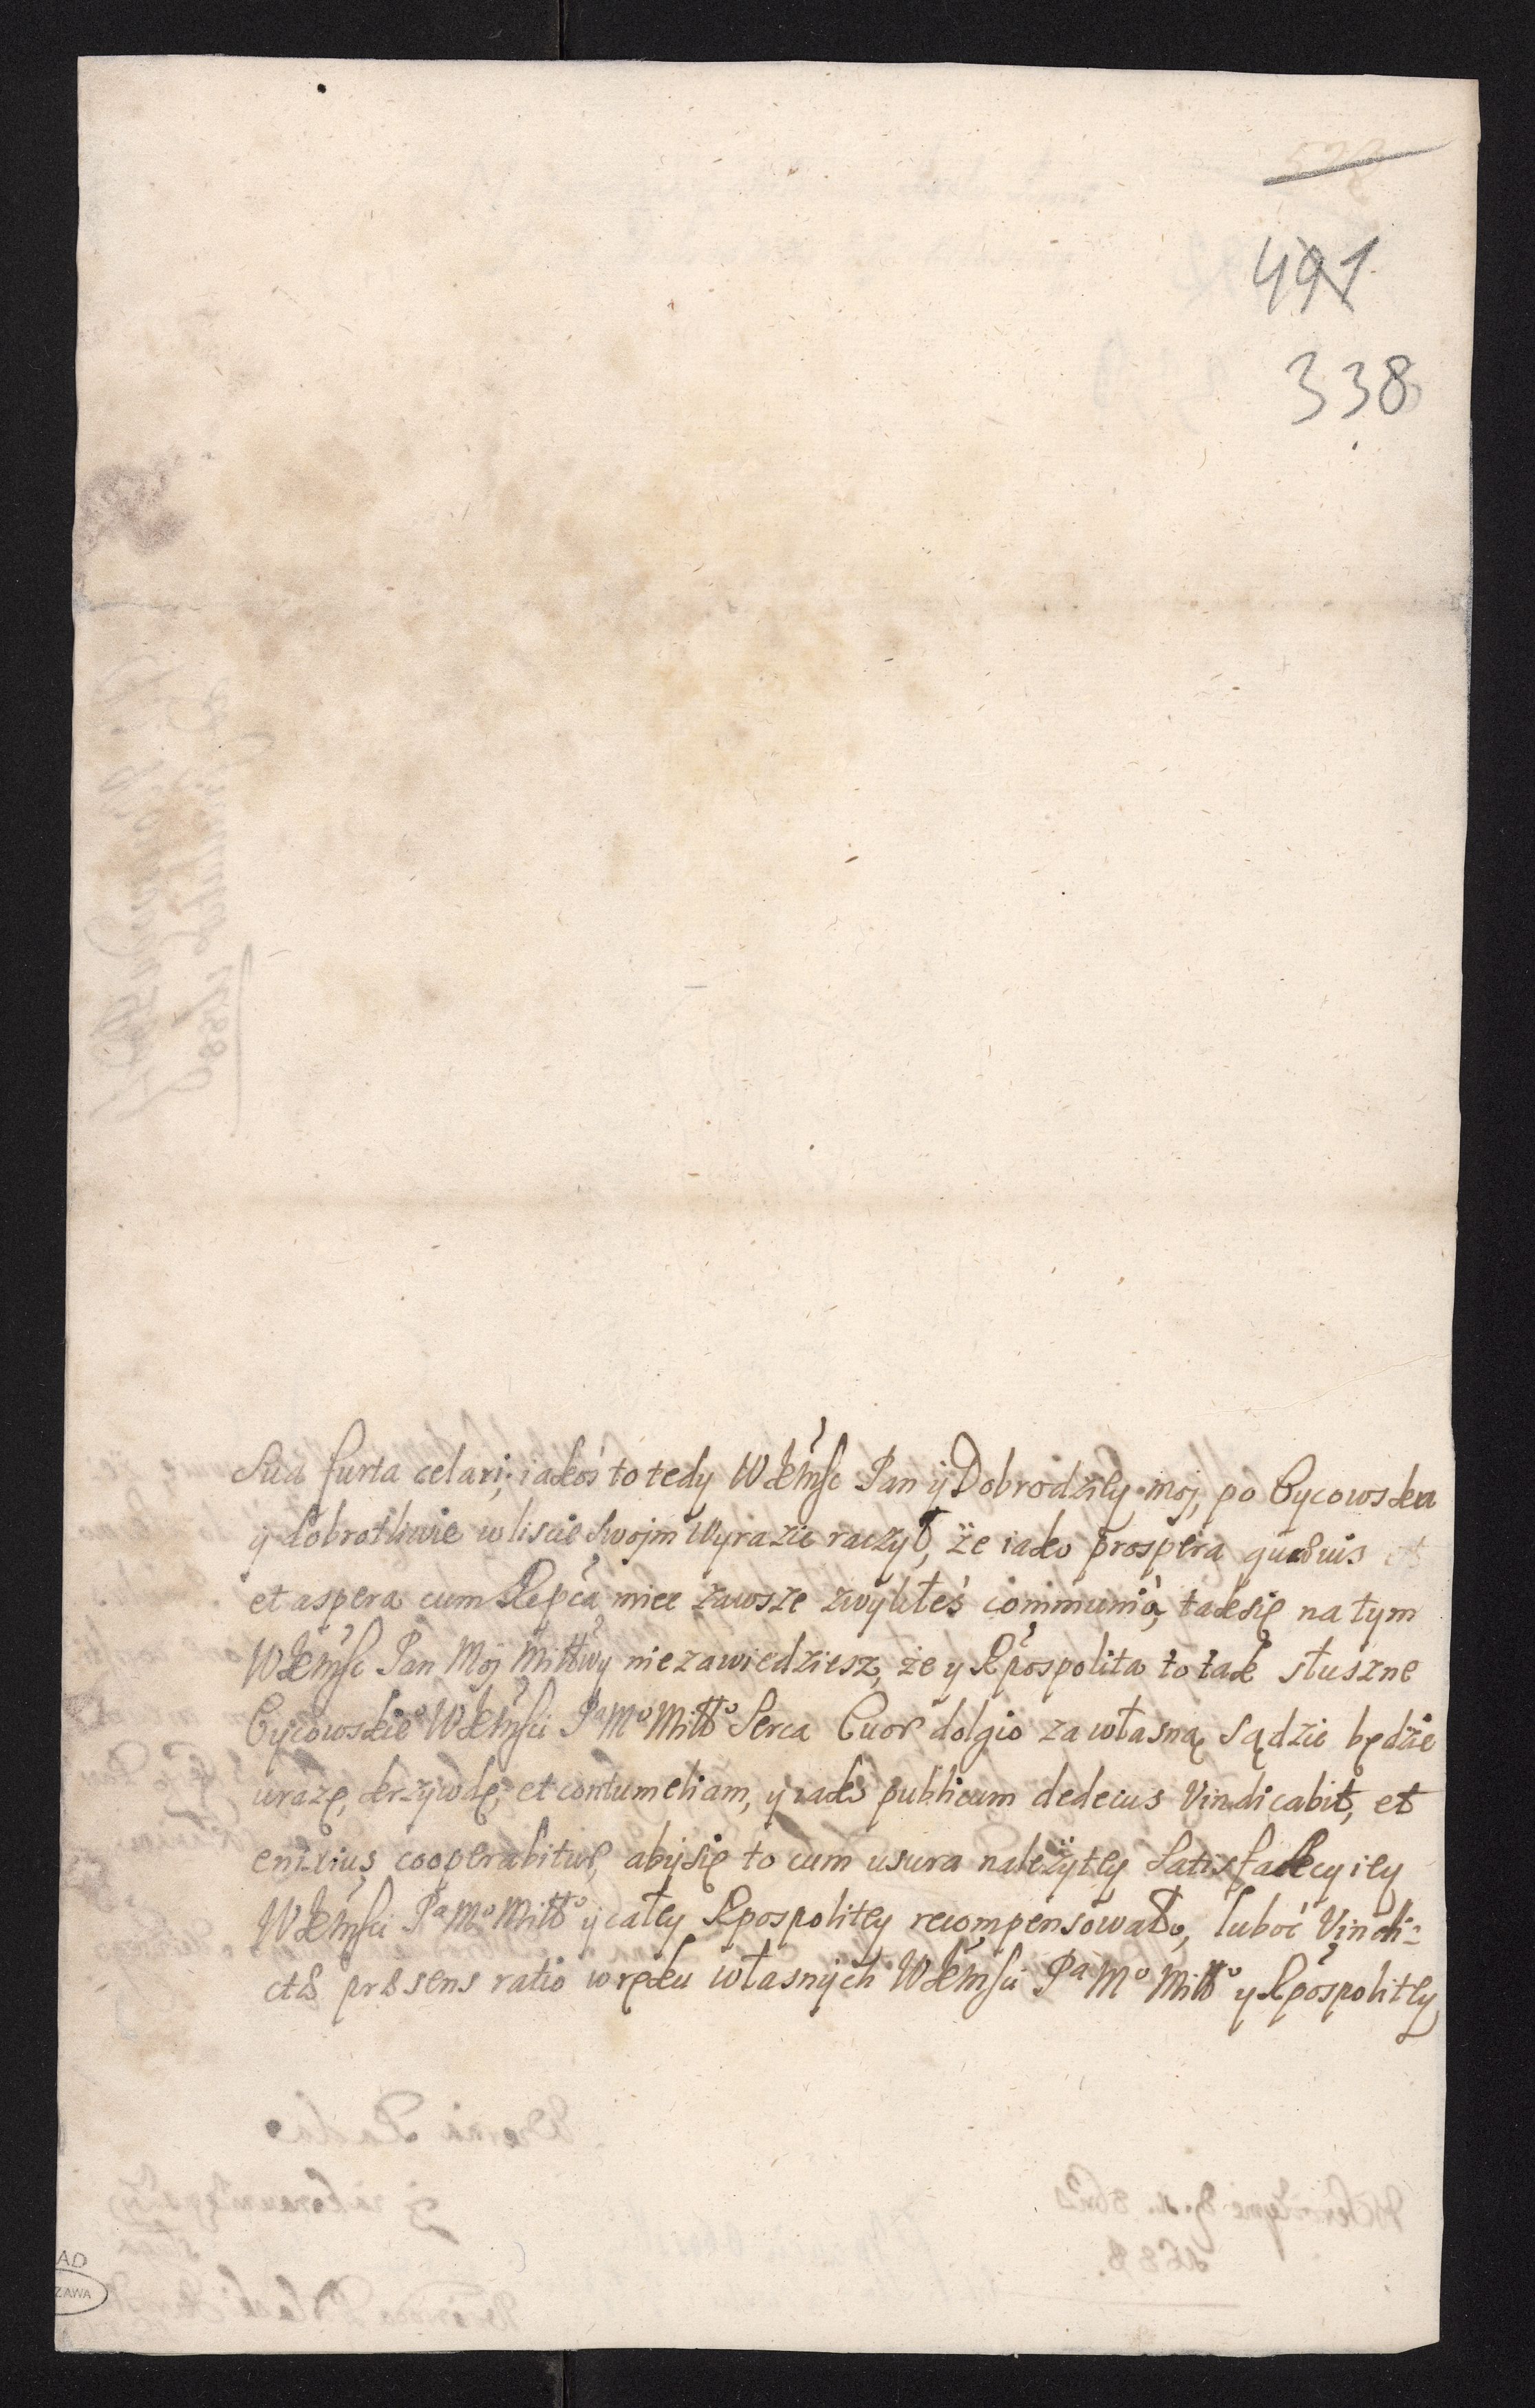 491
338
Sua furta celari; iakoś to tedy WKMść Pan ÿ Dobrodziey moj, po Oycowsku
y dobrotliwie w liscie swojm wyrazic raczył, że iako prospera quævis et
et aspera cum Rępca miec zawsze zwykłeś communia, tak się na tym
WKMść Pan Moj Miłłwy nie zawiedziesz, że y Rpospolita to tak słuszne
Oycowskie WKMści Pª Mº Miłłº Serca Cuor dolgio za własną sądzic będzie
urazę, krzywdę, et contumeliam, y iako publicum dedecus Vindicabit, et
enixius cooperabitur, aby się to cum usura należytey Satisfakcyiey
WKMści Pª Mº Miłłº ÿ całey Rpospolitey recompensowało, luboć Vindi=
ctæ præsens ratio w ręku własnych WKMści Pª Mº Miłłº y Rpospolitey
AD
ZAWA